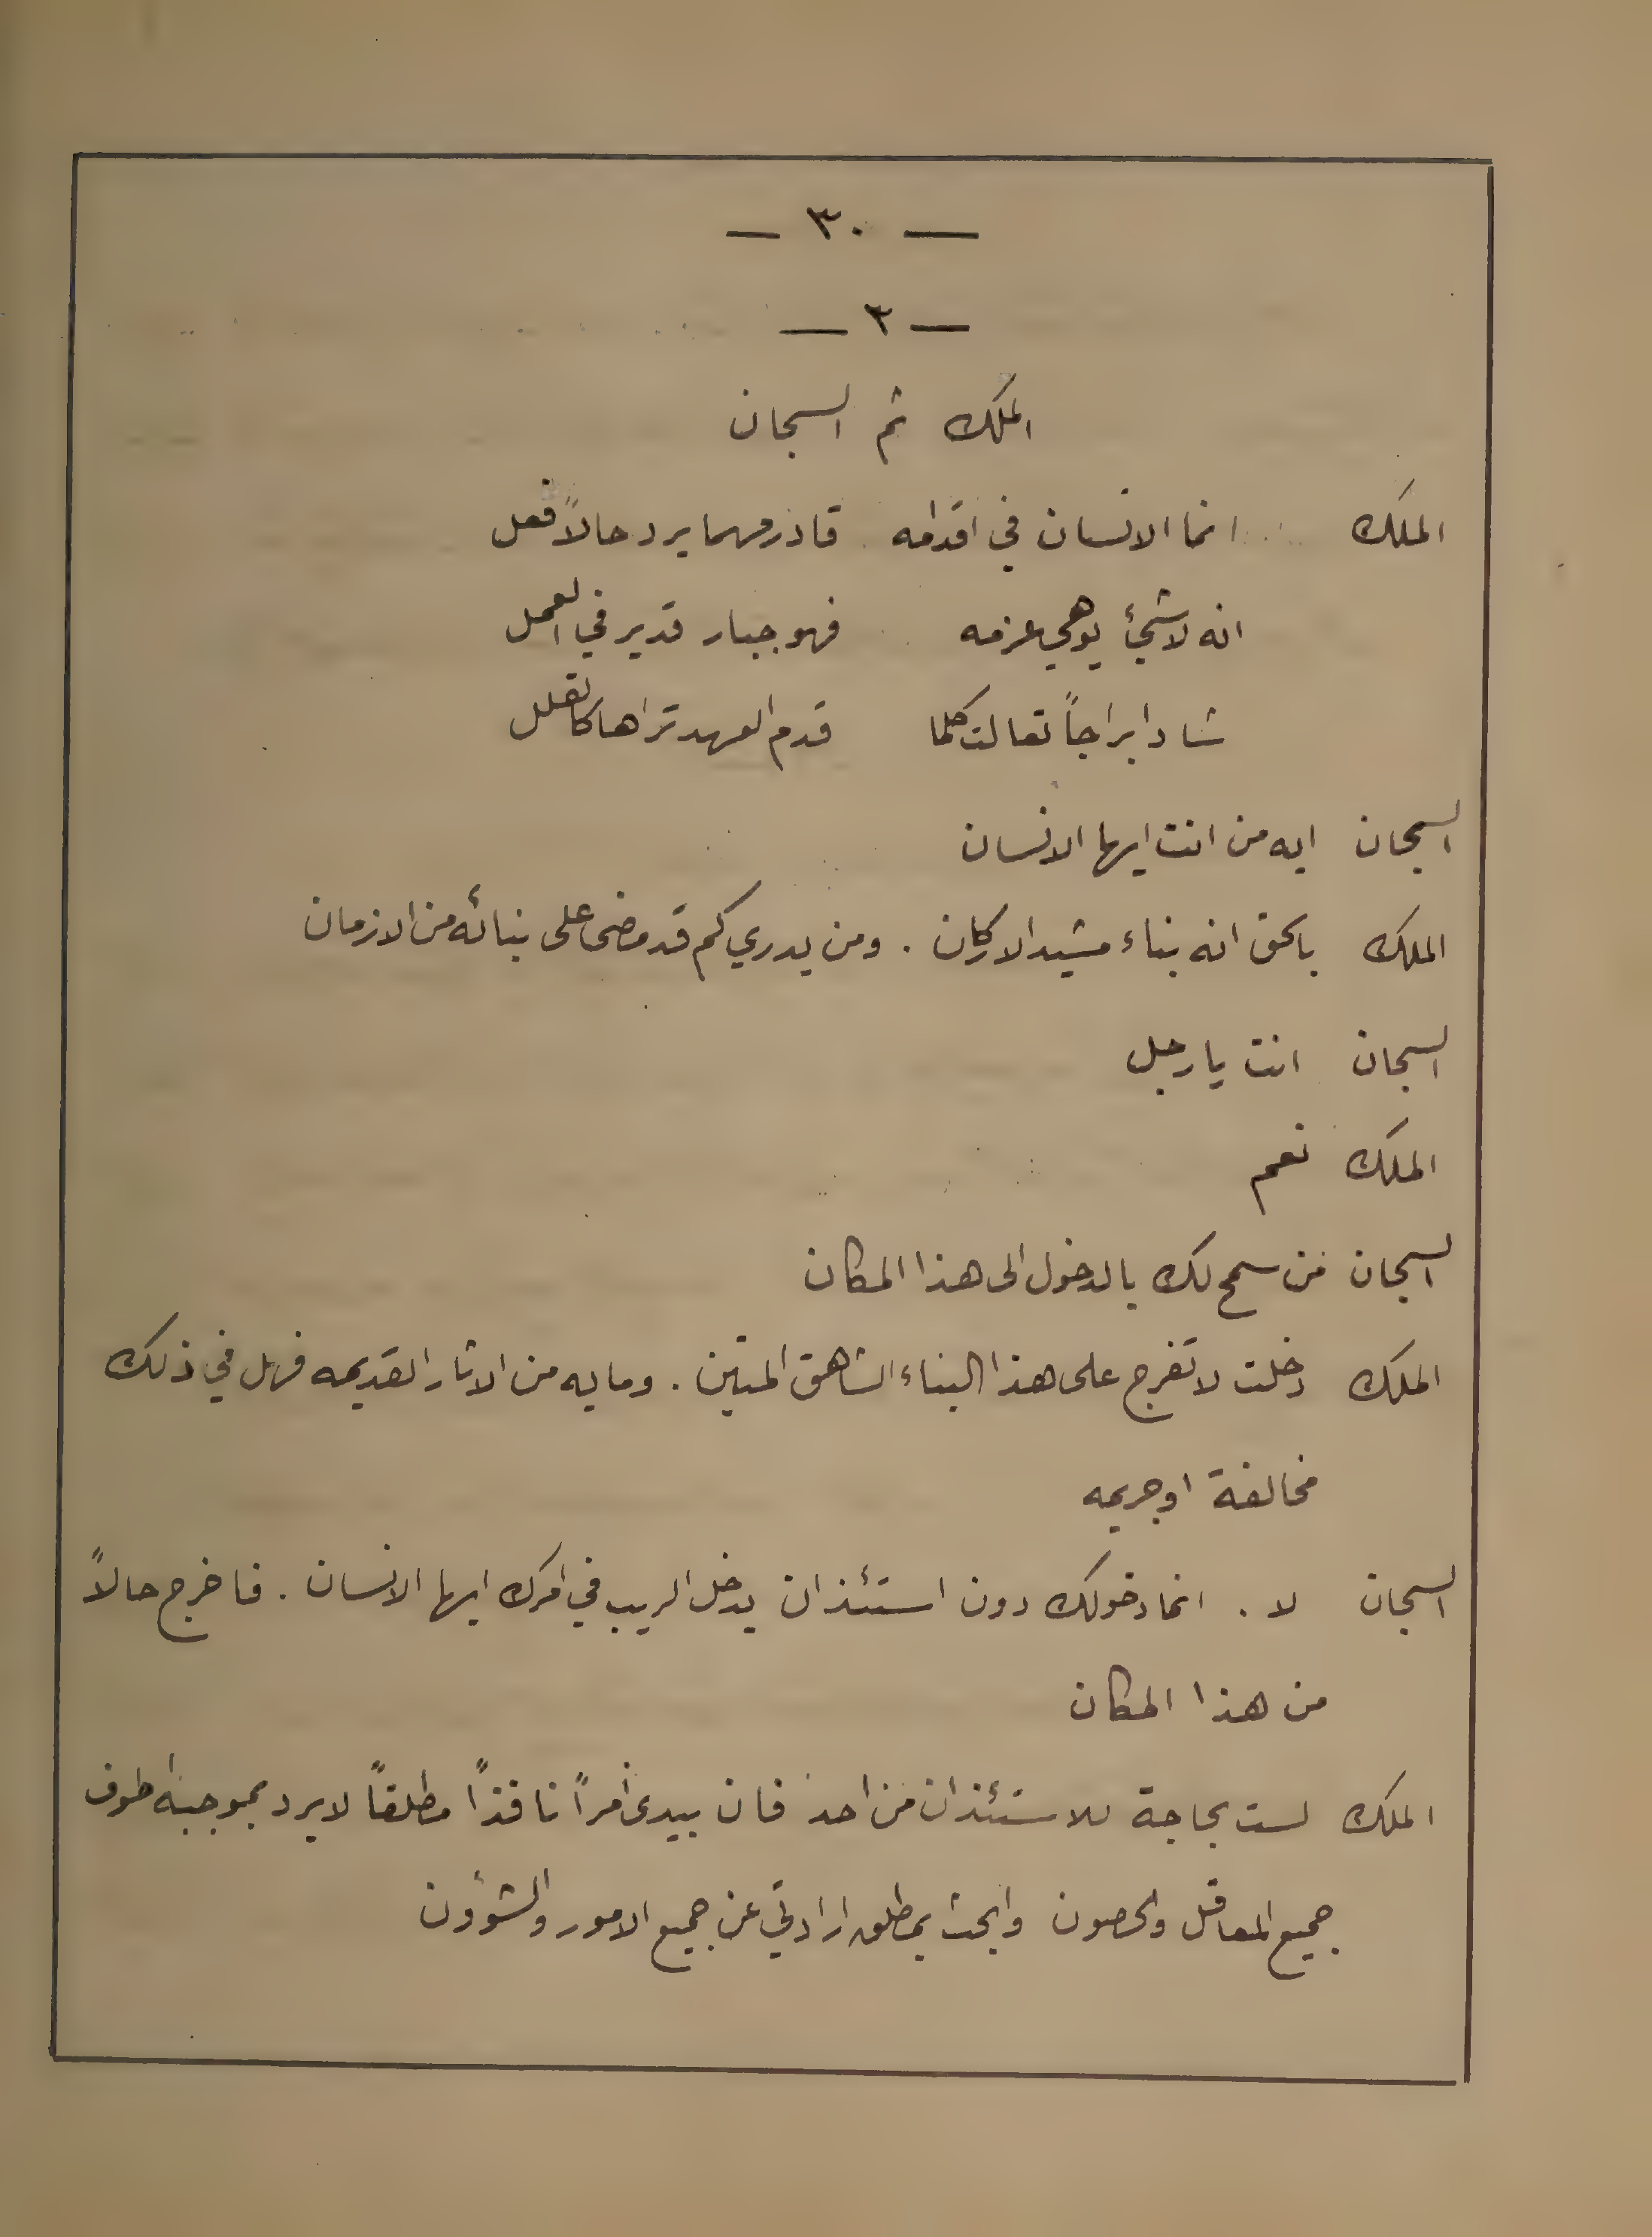 — ٣٠ —
— ٣ —
الملك ثم السجان
الملك انما الانسان في اقدامه قادر مهما يرد حالاً فعل
انه لا شيئ يوهي عزمه فهو جبار قدير في العمل
شاد ابراجاً تعالت كلما قدم العهد تراها كالقلل
السجان ايه من انت ايها الانسان
الملك بالحق انه بناء مشيد الاركان . ومن يدري كم قد مضى على بنائه من الازمان
السجان انت يا رجل
الملك نعم
السجان من سمح لك بالدخول الى هذا المكان
الملك دخلت لاتفرج على هذا البناء الشاهق المتين . وما به من الاثار القديمه فهل في ذلك
مخالفة او جريمه
السجان لا . انما دخولك دون استئذان يدخل الريب في امرك ايها الانسان . فاخرج حالاً
من هذا المكان
الملك لست بحاجة للاستئذان من احد فان بيدي امراً نافذاً مطلقاً لا يرد بموجبه اطوف
جميع المعاقل والحصون وابحث بمطلق ارادتي عن جميع الامور والشؤون